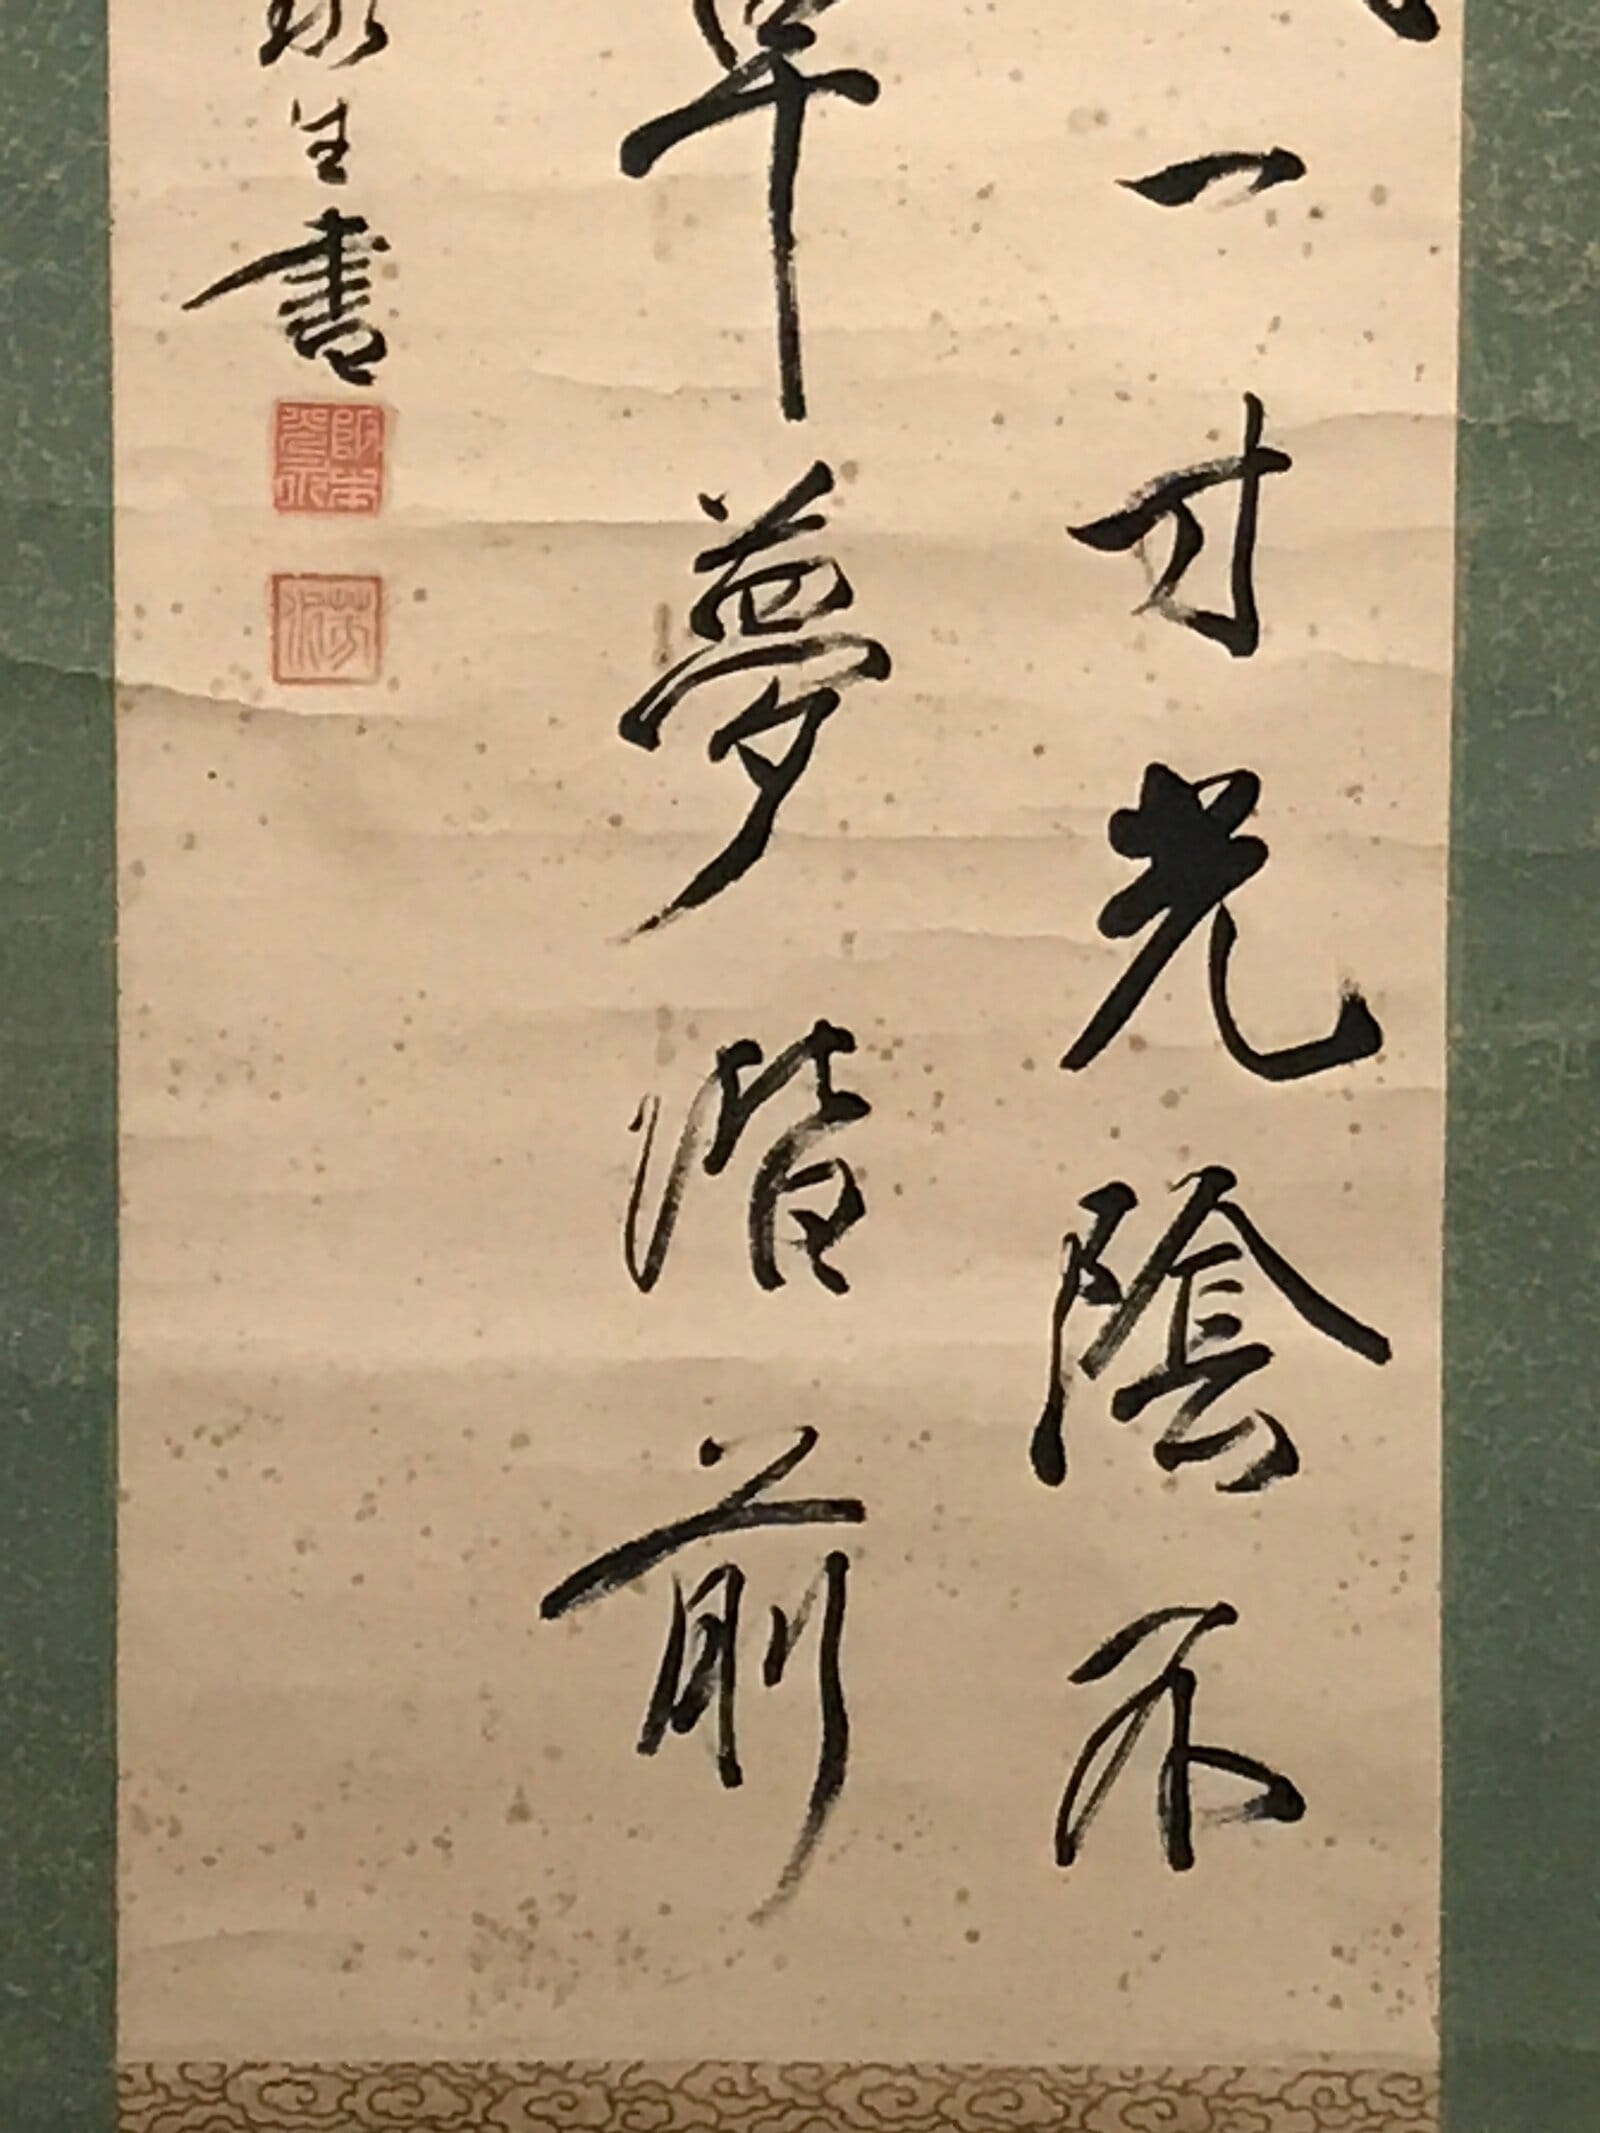 一寸光陰不
草夢階前
生書